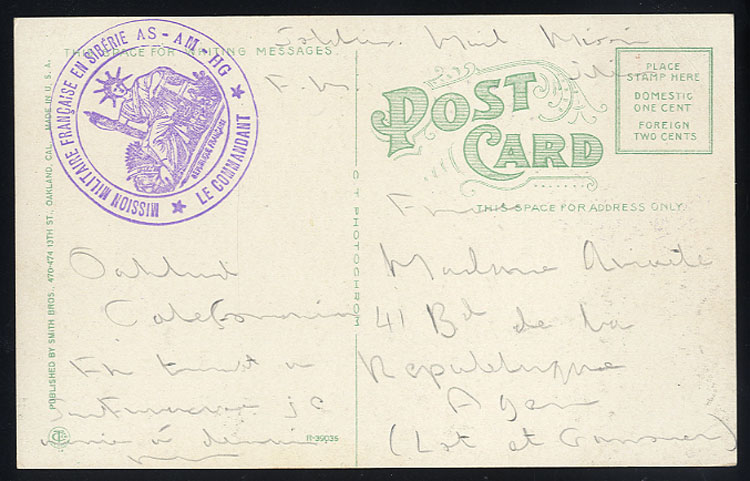 Soldiers Mail
F. M.
THIS SPACE FOR WRITING MESSAGES.
MISSION MILITAIRE FRANÇAISE EN SIBÉRIE AS-AM-HG
★ LE COMMANDANT ★
RÉPUBLIQUE FRANÇAISE
POST CARD
PLACE
STAMP HERE
DOMESTIC
ONE CENT
FOREIGN
TWO CENTS
THIS SPACE FOR ADDRESS ONLY.
PUBLISHED BY SMITH BROS., 470-474 13TH ST., OAKLAND, CAL. MADE IN U. S. A.
C T PHOTOCHROM
Oakland
California
je
à demain
R-39035
Madame
41 Bd de la
Republique
Agen
(Lot et Garonne)